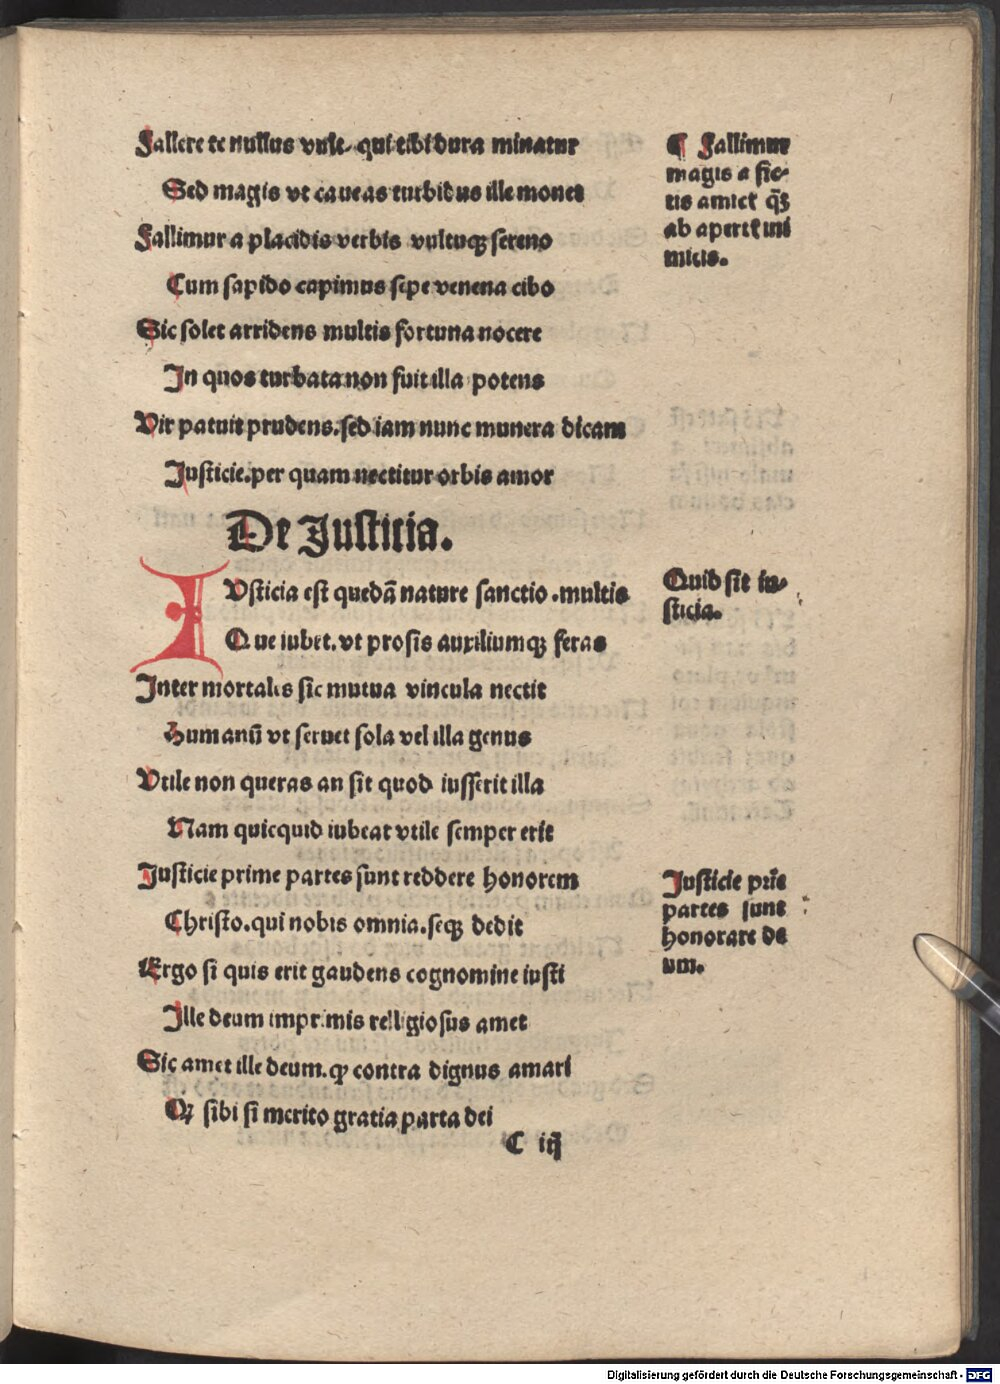 Fallere te nullus vult. qui tibi dura minatur
Sed magis vt caueas turbidus ille monet
Fallimur a placidis verbis vultuqꝫ sereno
Cum sapido capimus sepe venena cibo
Sic solet arridens multis fortuna nocere
In quos turbata non fuit illa potens
Vir patuit prudens. sed iam nunc munera dicam
Justicie. per quam nectitur orbis amor
¶ Fallimur
magis a fic-
tis amicꝭ qꝫ̄
ab apertꝭ ini
micis.
De Justitia.
IVsticia est quedā nature sanctio. multis
Que iubet. vt prosis auxiliumqꝫ feras
Inter mortales sic mutua vincula nectit
Humanū vt seruet sola vel illa genus
Vtile non queras an sit quod iusserit illa
Nam quicquid iubeat vtile semper erit
Justicie prime partes sunt reddere honorem
Christo. qui nobis omnia. seqꝫ dedit
Ergo si quis erit gaudens cognomine iusti
Ille deum imprimis relligiosus amet
Sic amet ille deum. ꝙ contra dignus amari
Qꝫ sibi si merito gratia parta dei
Quid sit iu-
sticia.
Justicie prīe
partes sunt
honorare de
um.
C iij
Digitalisierung gefördert durch die Deutsche Forschungsgemeinschaft - DFG